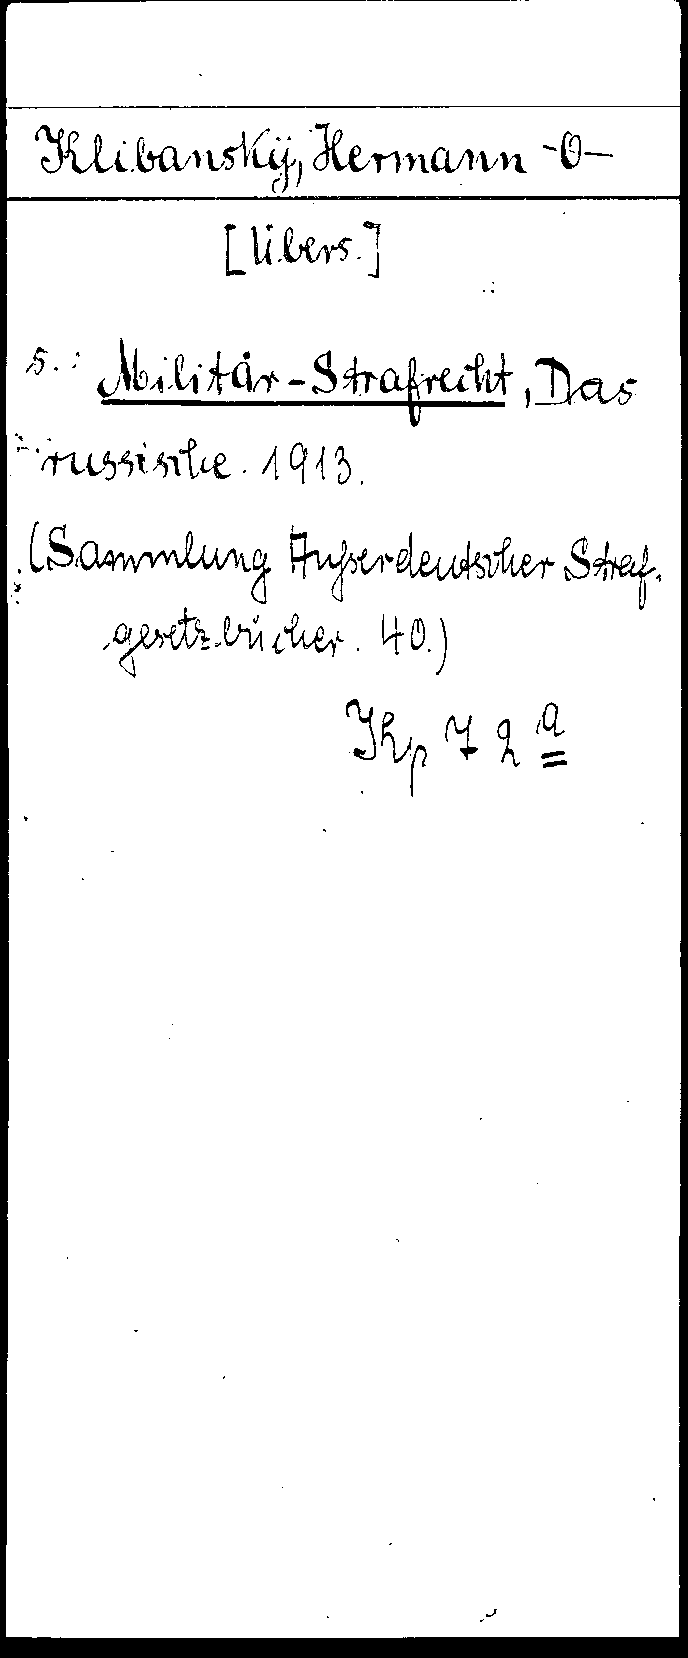 Klibanskÿ, Hermann -O-
[Übers.]
s.: Militär-Strafrecht, Das
russische. 1913.
(Sammlung Außerdeutscher Straf-
gesetzbücher. 40.)
Kp 72 a